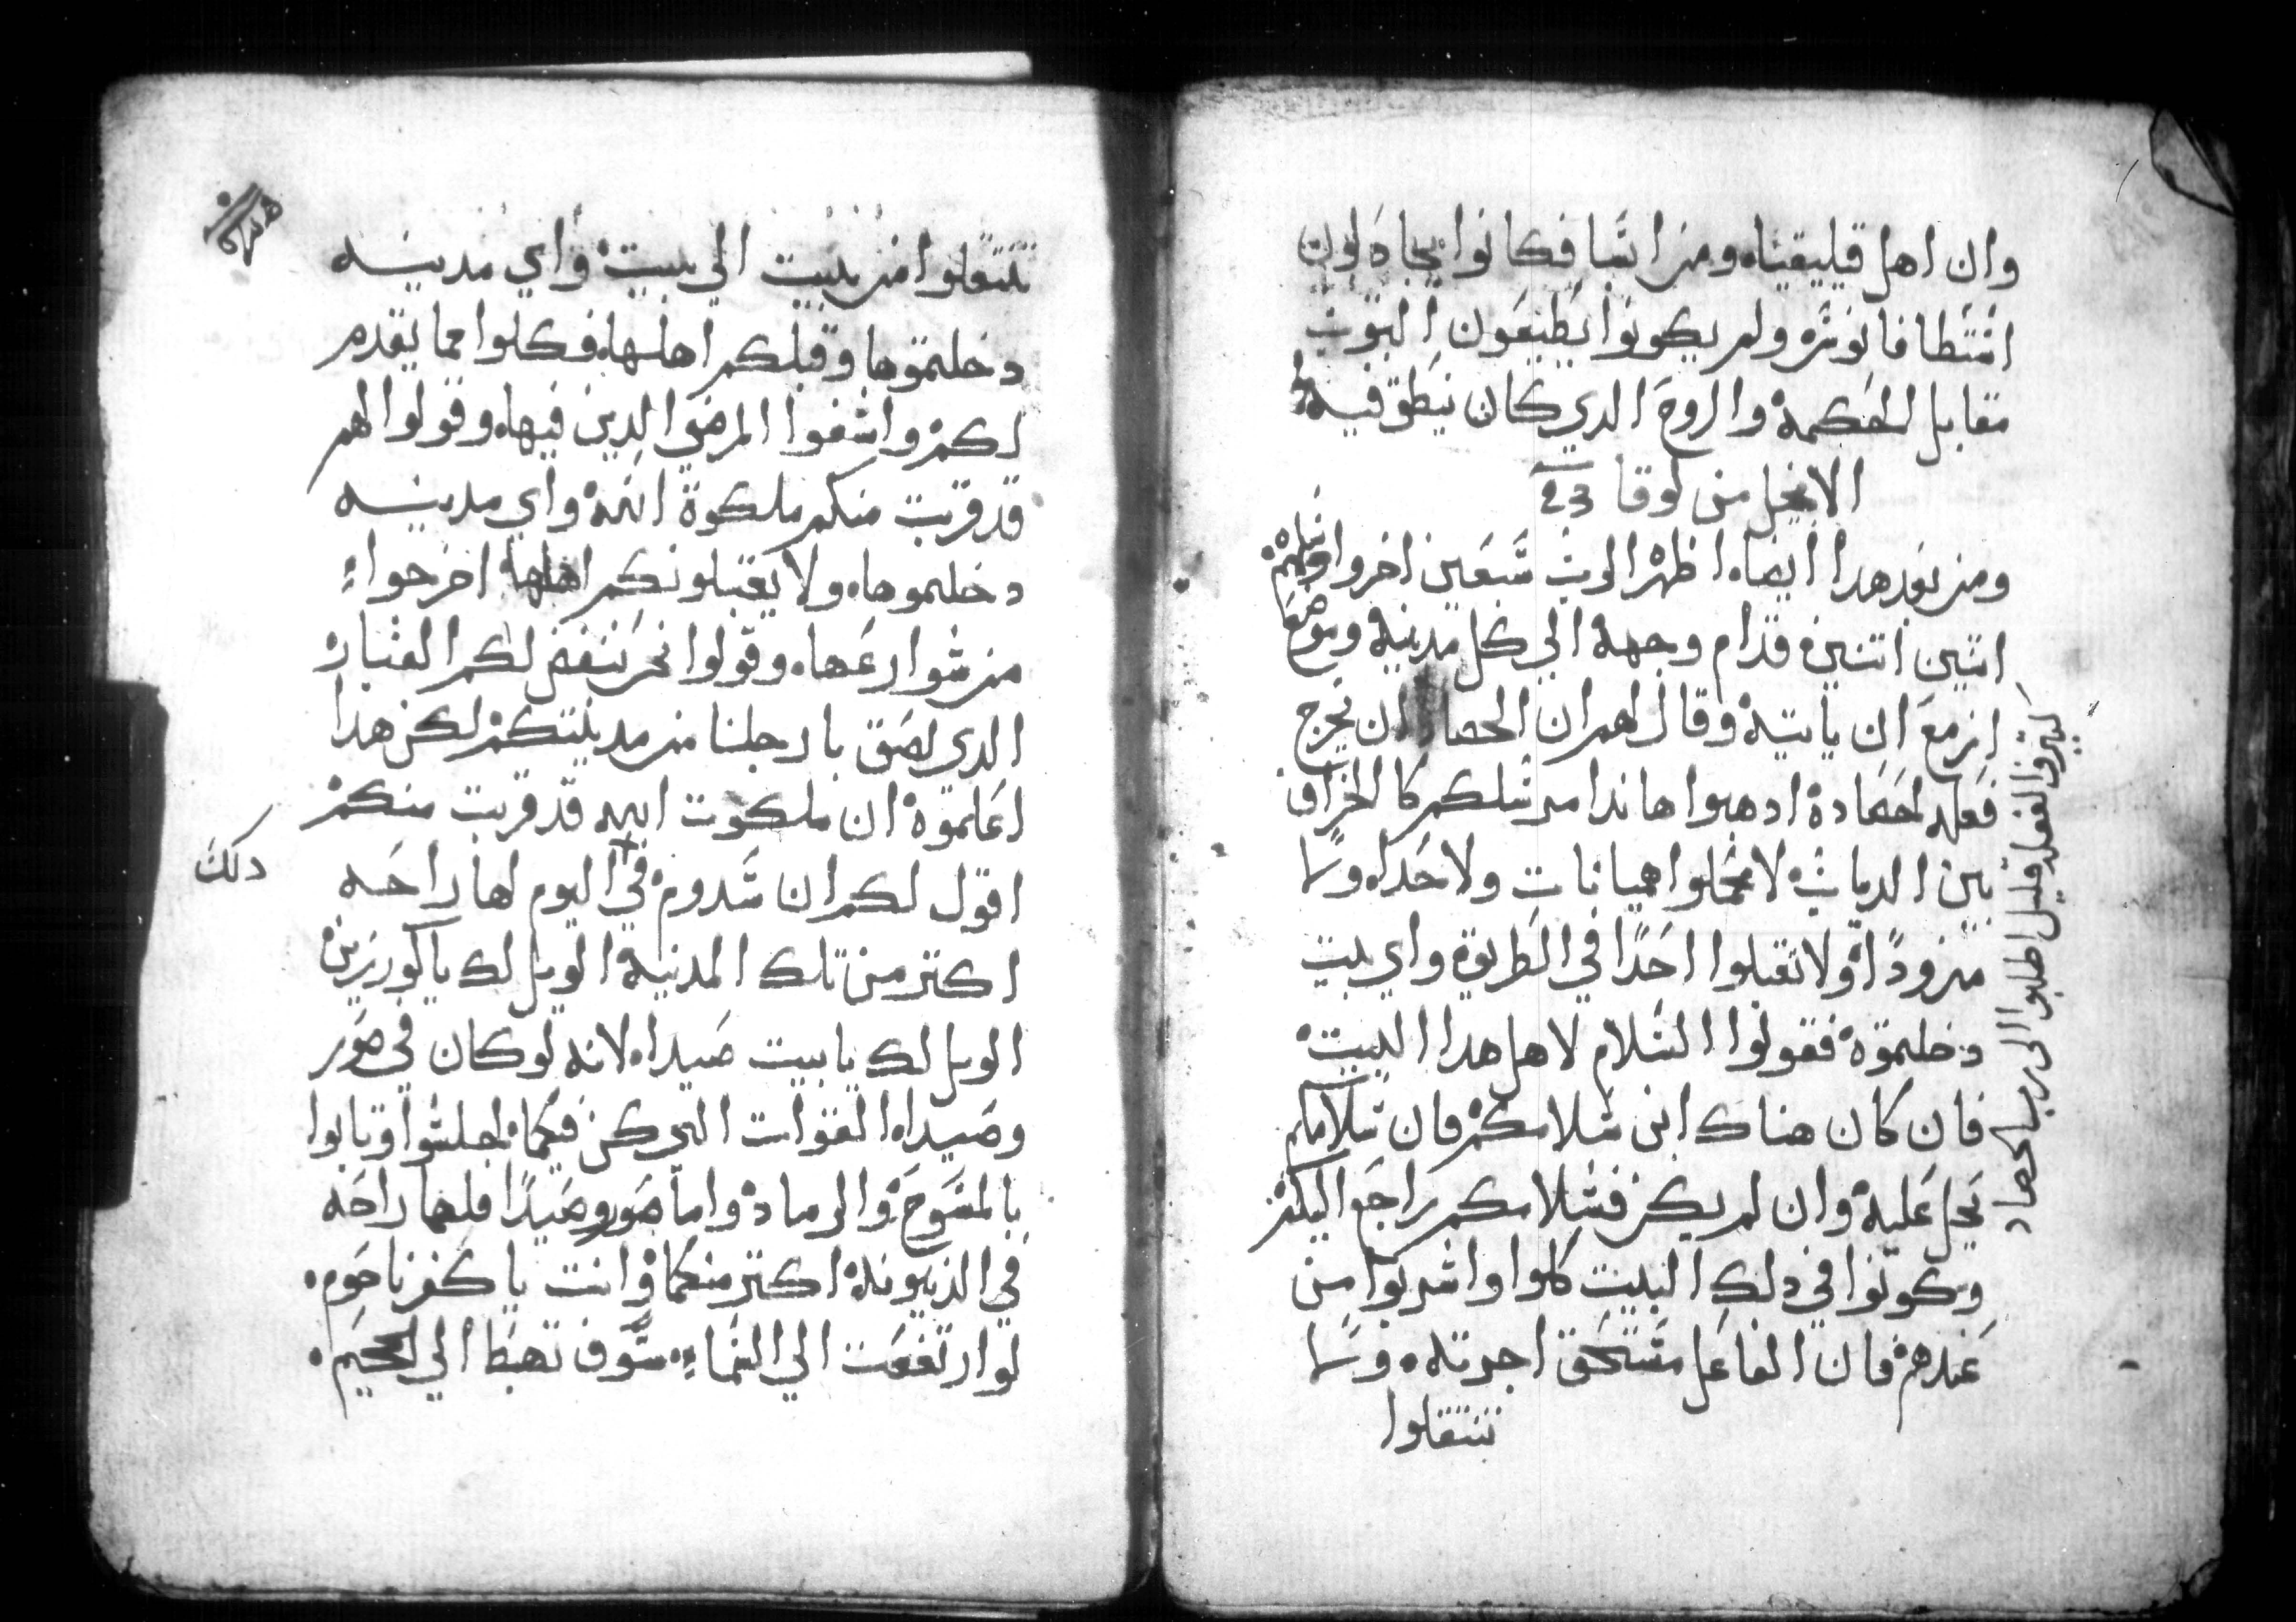 وان اهل قليقيا ومن اسيا فكانوا يجادلون
اسطافانوس ولم يكونوا يطيقون الثبوت
مقابل الحكمة والروح الدي كان ينطق فيه
الانجيل من لوقا
ومن بعد هدا ايضا اظهر الرب سبعين اخر وارسلهم
اتنين اتنين قدام وجهه الي كل مدينة وموضع
ازمع ان ياتيه وقال لهم ان الحصاد
كتير والفعله قليل اطلبوا الى رب الحصاد
ان يخرج
فعله لحصاده ادهبوا هاندا مرسلكم كالخراف
بين الدياب لا تحملوا هميانات ولا حدا ولا
مزودا ولا تقبلوا احدا في الطريق واي بيت
دخلتموه فقولوا السلام لاهل هدا البيت
فان كان هناك ابن سلامكم فان سلامكم
يحل عليه وان لم يكن فسلامكم راجع اليكم
وكونوا في دلك البيت كلوا واشربوا من
عندهم فان الفاعل مستحق اجرته ولا
تنتقلوا
تنتقلوا من بيت الي بيت واي مدينه
دخلتموها وقبلكم اهلها فكلوا مما يقدم
لكم واشفوا المرضي الدين فيها وقولوا لهم
قد قربت منكم ملكوة الله واي مدينه
دخلتموها ولا يقبلونكم اهلها اخرجوا
من شوارعها وقولوا نحن ننفض لكم الغبار
الدي لصق بارجلنا من مدينتكم لكن هدا
اعلموه ان ملكوت الله قد قربت منكم
اقول لكم ان سدوم في اليوم لها راحه
دلك
اكتر من تلك المدينة الويل لك يا كورزين
الويل لك يا بيت صيدا لانه لو كان في صور
وصيدا القوات التي كن فيكما لجلسوا وتابوا
بالمسوح والرماد واما صور وصيدا فلهما راحه
في الدينونه اكتر منكما وانت يا كفرناحوم
لو ارتفعت الي السماء سوف تهبط الي الجحيم